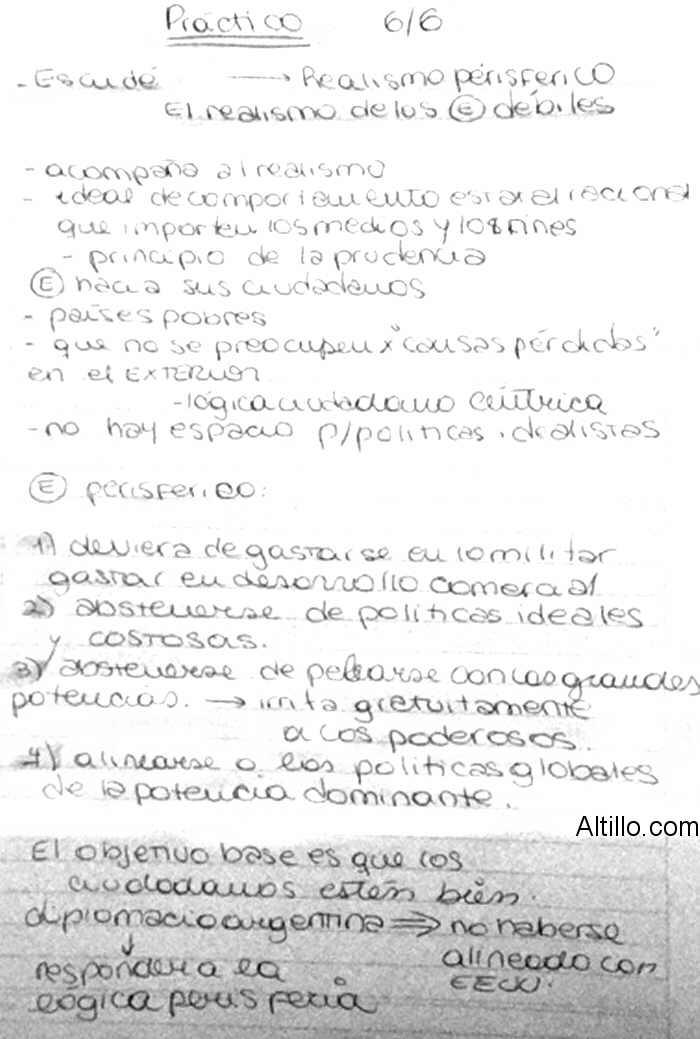 Práctico 6/6
- Escudé → Realismo périsferico
El realismo de los Ⓔ débiles
- acompaña al realismo
- ideal de comportamiento estatal racional
que importen los medios y los fines
- principio de la prudencia
Ⓔ hacia sus ciudadanos
- países pobres
- que no se preocupen x "causas pérdidas"
en el EXTERIOR
- lógica ciudadano céntrica
- no hay espacio p/politicas idealistas
Ⓔ perisferico:
1) deviera de gastarse en lo militar
gastar en desarrollo comercial
2) abstenerse de politicas ideales
y costosas.
3) abstenerse de pelearse con las grandes
potencias. → irrita gretuitamente
a los poderosos.
4) alinearse a las politicas globales
de la potencia dominante.
Altillo.com
El objetivo base es que los
ciudadanos estén bién.
diplomacia argentina ⇒ no haberse
↓ alineado con
responder a la EEUU.
lógica perisferia